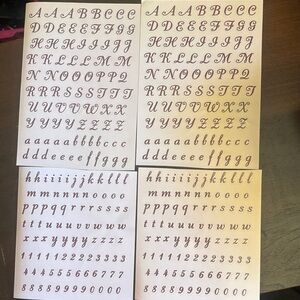 A A A A B B B C C C
D D E E E E F F G G
H H H I I I I J J
K K L L L L M M M
N N O O O P P Q
R R R S S S S T T T
U U U V V W X X
Y Y Y Y Z Z Z Z
a a a a a b b b b c c c
d d d e e e e e f f g g g
A A A A B B B C C C
D D E E E E F F G G
H H H I I I I J J
K K L L L L M M M
N N O O O P P Q
R R R S S S S T T T
U U U V V W X X
Y Y Y Y Z Z Z Z
a a a a a b b b b c c c
d d d e e e e e f f g g g
h h i i i i j j k k l l l
m m m n n n n o o o o
p p p q q r r r s s s s
t t t u u u u v v w w
x x x y y y y z z z z
1 1 1 1 1 2 2 2 2 3 3 3 3
4 4 4 4 5 5 5 6 6 6 7 7 7
8 8 8 8 9 9 9 9 0 0 0 0
h h i i i i j j k k l l l
m m m n n n n o o o o
p p p q q r r r s s s s
t t t u u u u v v w w
x x x y y y y z z z z
1 1 1 1 1 2 2 2 2 3 3 3 3
4 4 4 4 5 5 5 6 6 6 7 7 7
8 8 8 8 9 9 9 9 0 0 0 0